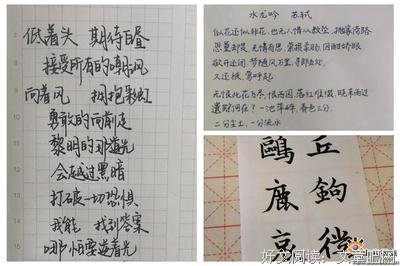 7 低着头 期待白昼
8 接受所有的嘲讽
9 向着风 拥抱彩虹
10 勇敢的向前走
11 黎明的那道光
12 会越过黑暗
13 打破一切恐惧
14 我能 找到答案
15 哪怕要逆着光
水龙吟 苏轼
似花还似非花,也无人惜从教坠。抛家傍路
思量却是,无情有思。萦损柔肠,困酣娇眼
欲开还闭。梦随风万里,寻郎去处,
又还被,莺呼起。
恨此花飞尽,恨西园,落红难缀。晓来雨过
遗踪何在?一池萍碎。春色三分,
二分尘土,一分流水
鷗 丘
鹿 鉤